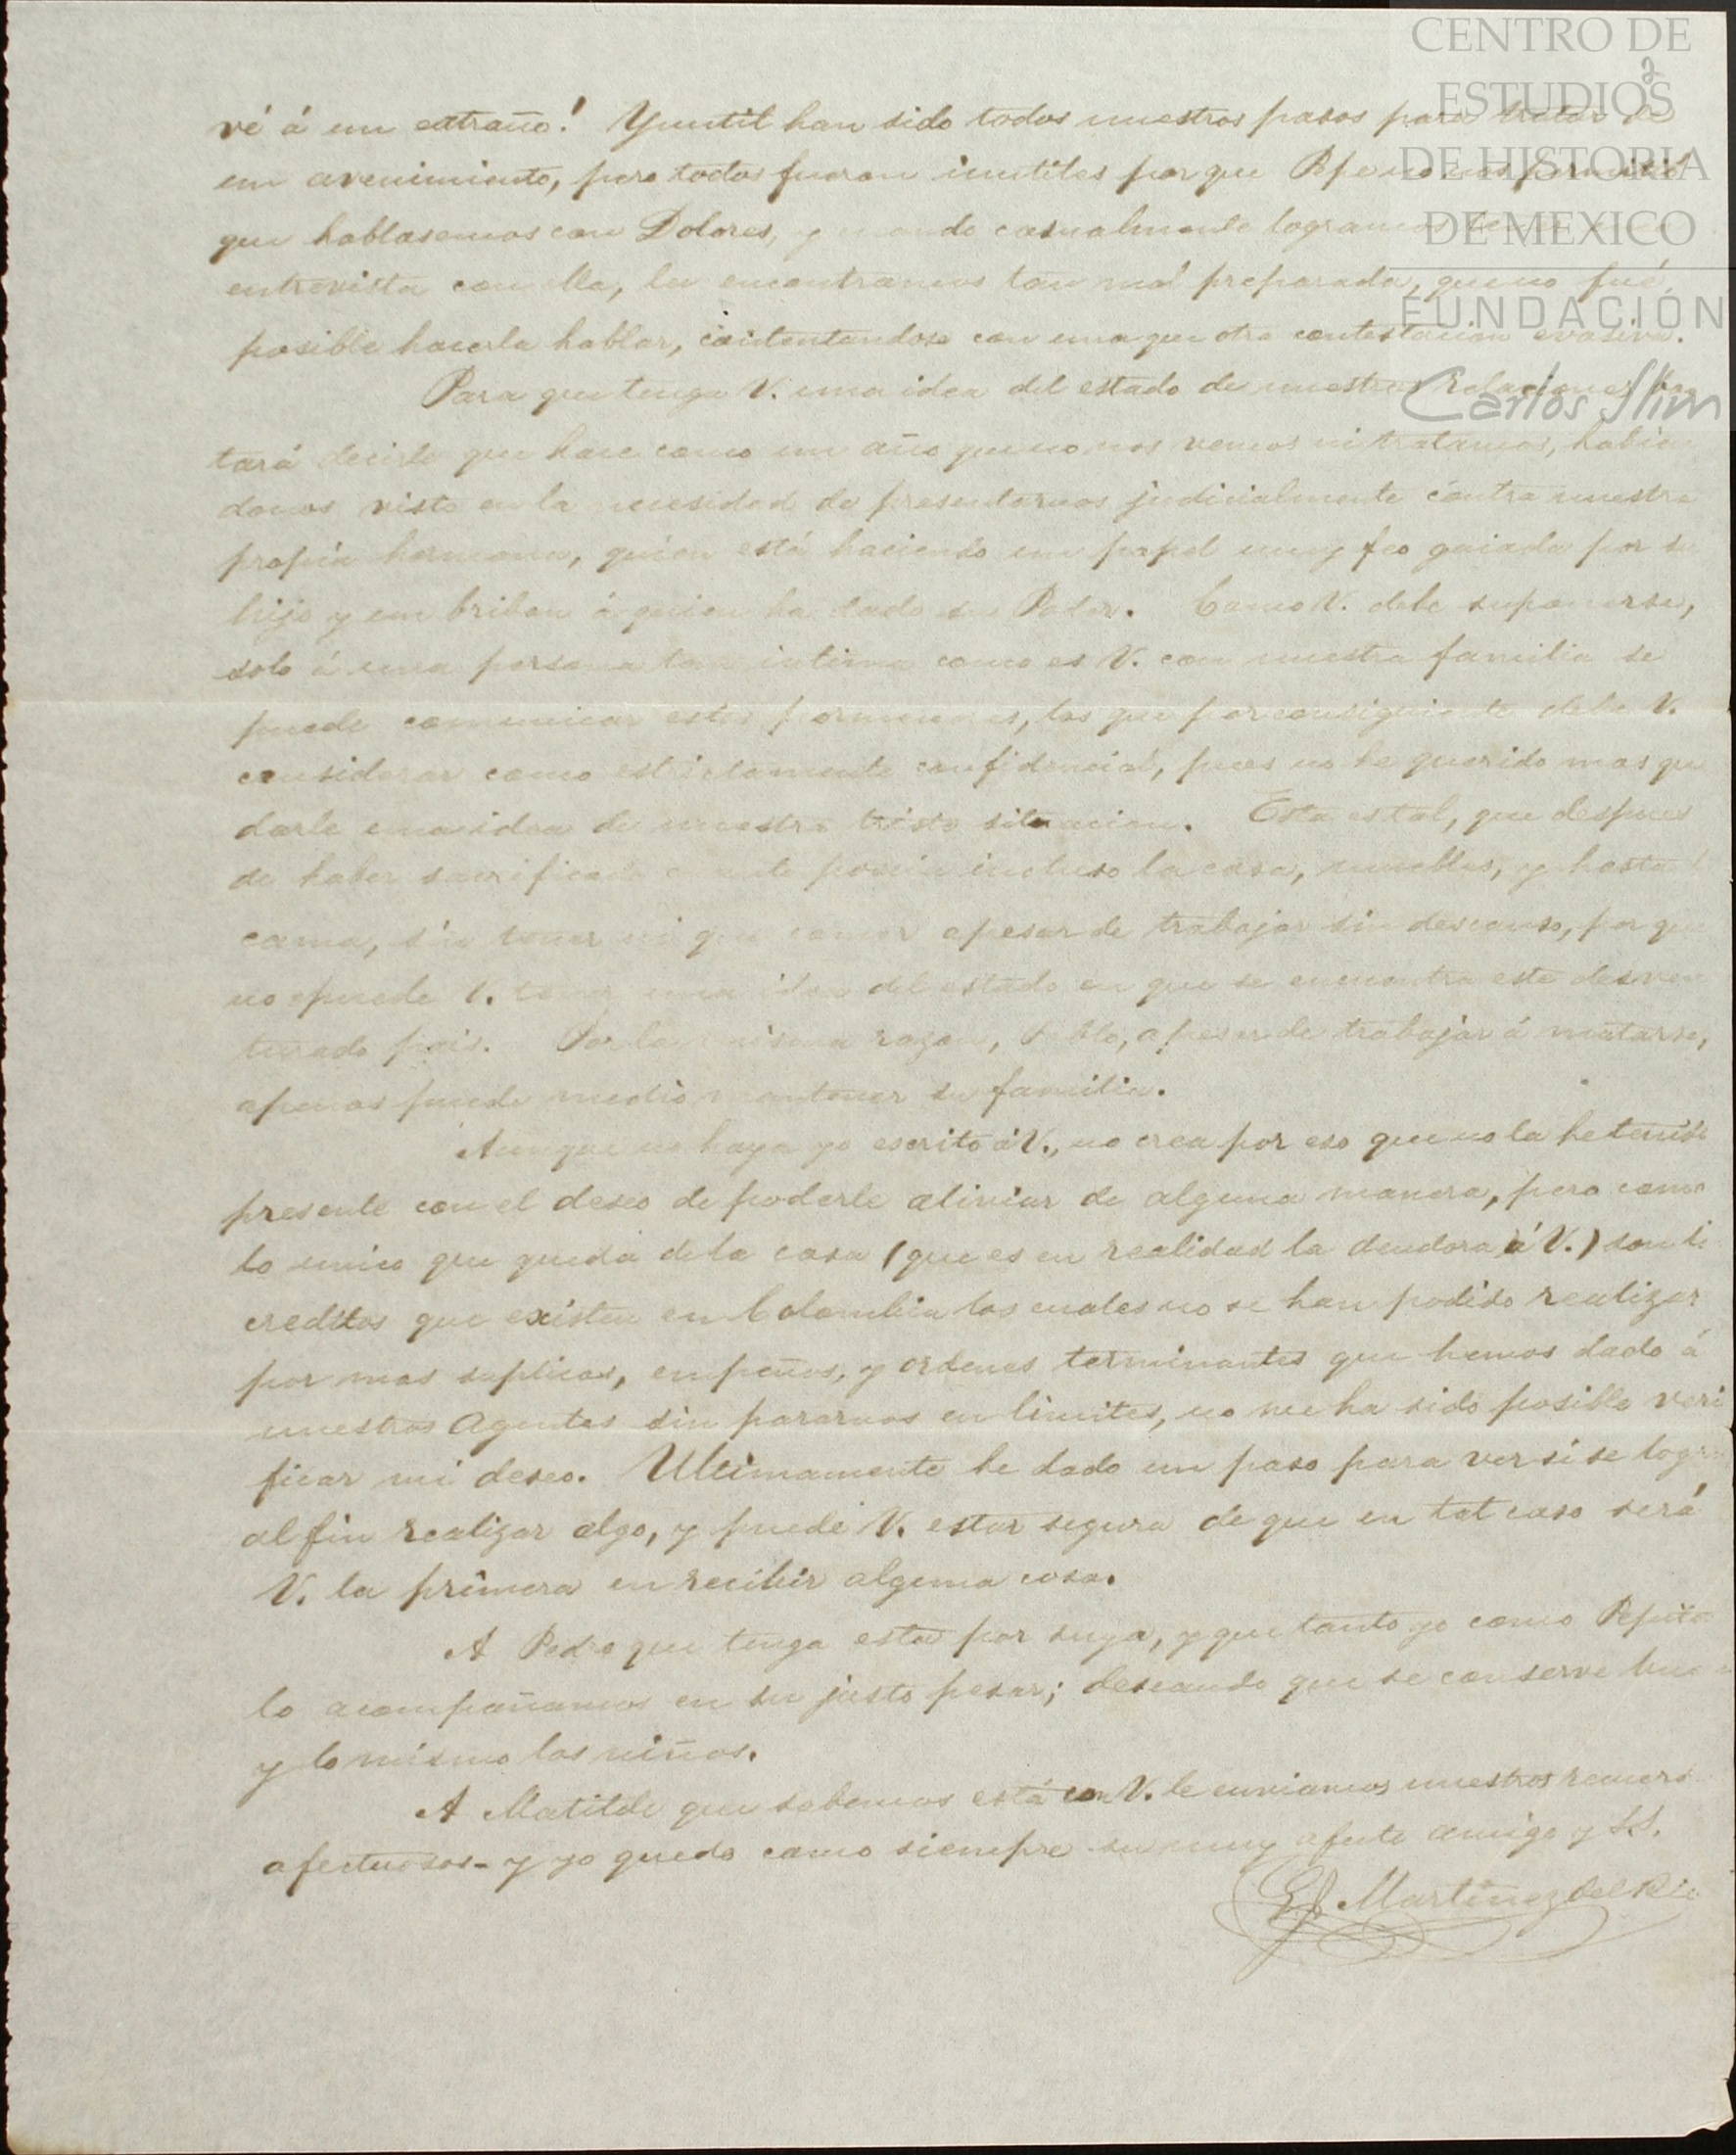 CENTRO DE
ESTUDIOS
DE HISTORIA
DE MEXICO
FUNDACIÓN
Carlos Slim
2
vé á un extraño! Ynutil han sido todos nuestros pasos para tratar de
un avenimiento, pero todos fueron inutiles por que Pepe no nos permitió
que hablasemos con Dolores, y cuando casualmente logramos tener una
entrevista con ella, la encontramos tan mal preparada, que no fué
posible hacerla hablar, contentandose con una que otra contestacion evasiva.
Para que tenga V. una idea del estado de nuestras relaciones bas
tará decirle que hace como un año que no nos vemos ni tratamos, habien
donos visto en la necesidad de presentarnos judicialmente contra nuestra
propia hermana, quien está haciendo un papel muy feo guiada por su
hijo y un bribon á quien ha dado su Poder. Como V. debe suponerse,
solo á una persona tan intima como es V. con nuestra familia se
puede comunicar estos pormenores, los que por consiguiente debe V.
considerar como estrictamente confidencial, pues no he querido mas que
darle una idea de nuestra triste situacion. Esta es tal, que despues
de haber sacrificado cuanto poseia incluso la casa, muebles, y hasta la
cama, sin tener ni que comer apesar de trabajar sin descanso, por que
no puede V. tener una idea del estado en que se encuentra este desven
turado pais. Por la misma razon, Pablo, apesar de trabajar á matarse,
apenas puede medio mantener su familia.
Aunque no haya yo escrito á V., no crea por eso que no la he tenido
presente con el deseo de poderle aliviar de alguna manera, pero como
lo unico que queda de la casa (que es en realidad la deudora á V.) son los
creditos que existen en Colombia los cuales no se han podido realizar
por mas suplicas, empeños, y ordenes terminantes que hemos dado á
nuestros Agentes sin pararnos en limites, no me ha sido posible veri
ficar mi deseo. Ultimamente he dado un paso para ver si se logra
al fin realizar algo, y puede V. estar segura de que en tal caso será
V. la primera en recibir alguna cosa.
A Pedro que tenga esta por suya, y que tanto yo como Pepita
lo acompañamos en su justo pesar; deseando que se conserve bueno
y lo mismo los niños.
A Matilde que sabemos está con V. le enviamos nuestros recuerdos
afectuosos- y yo quedo como siempre su muy afecto amigo y S.S.
Martinez del Rio